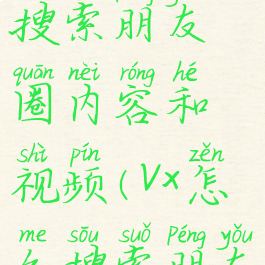 搜索朋友
quān nèi róng hé
圈内容和
shì pín zěn
视频(Vx怎
me sōu suǒ Péng yǒu
么搜索朋友